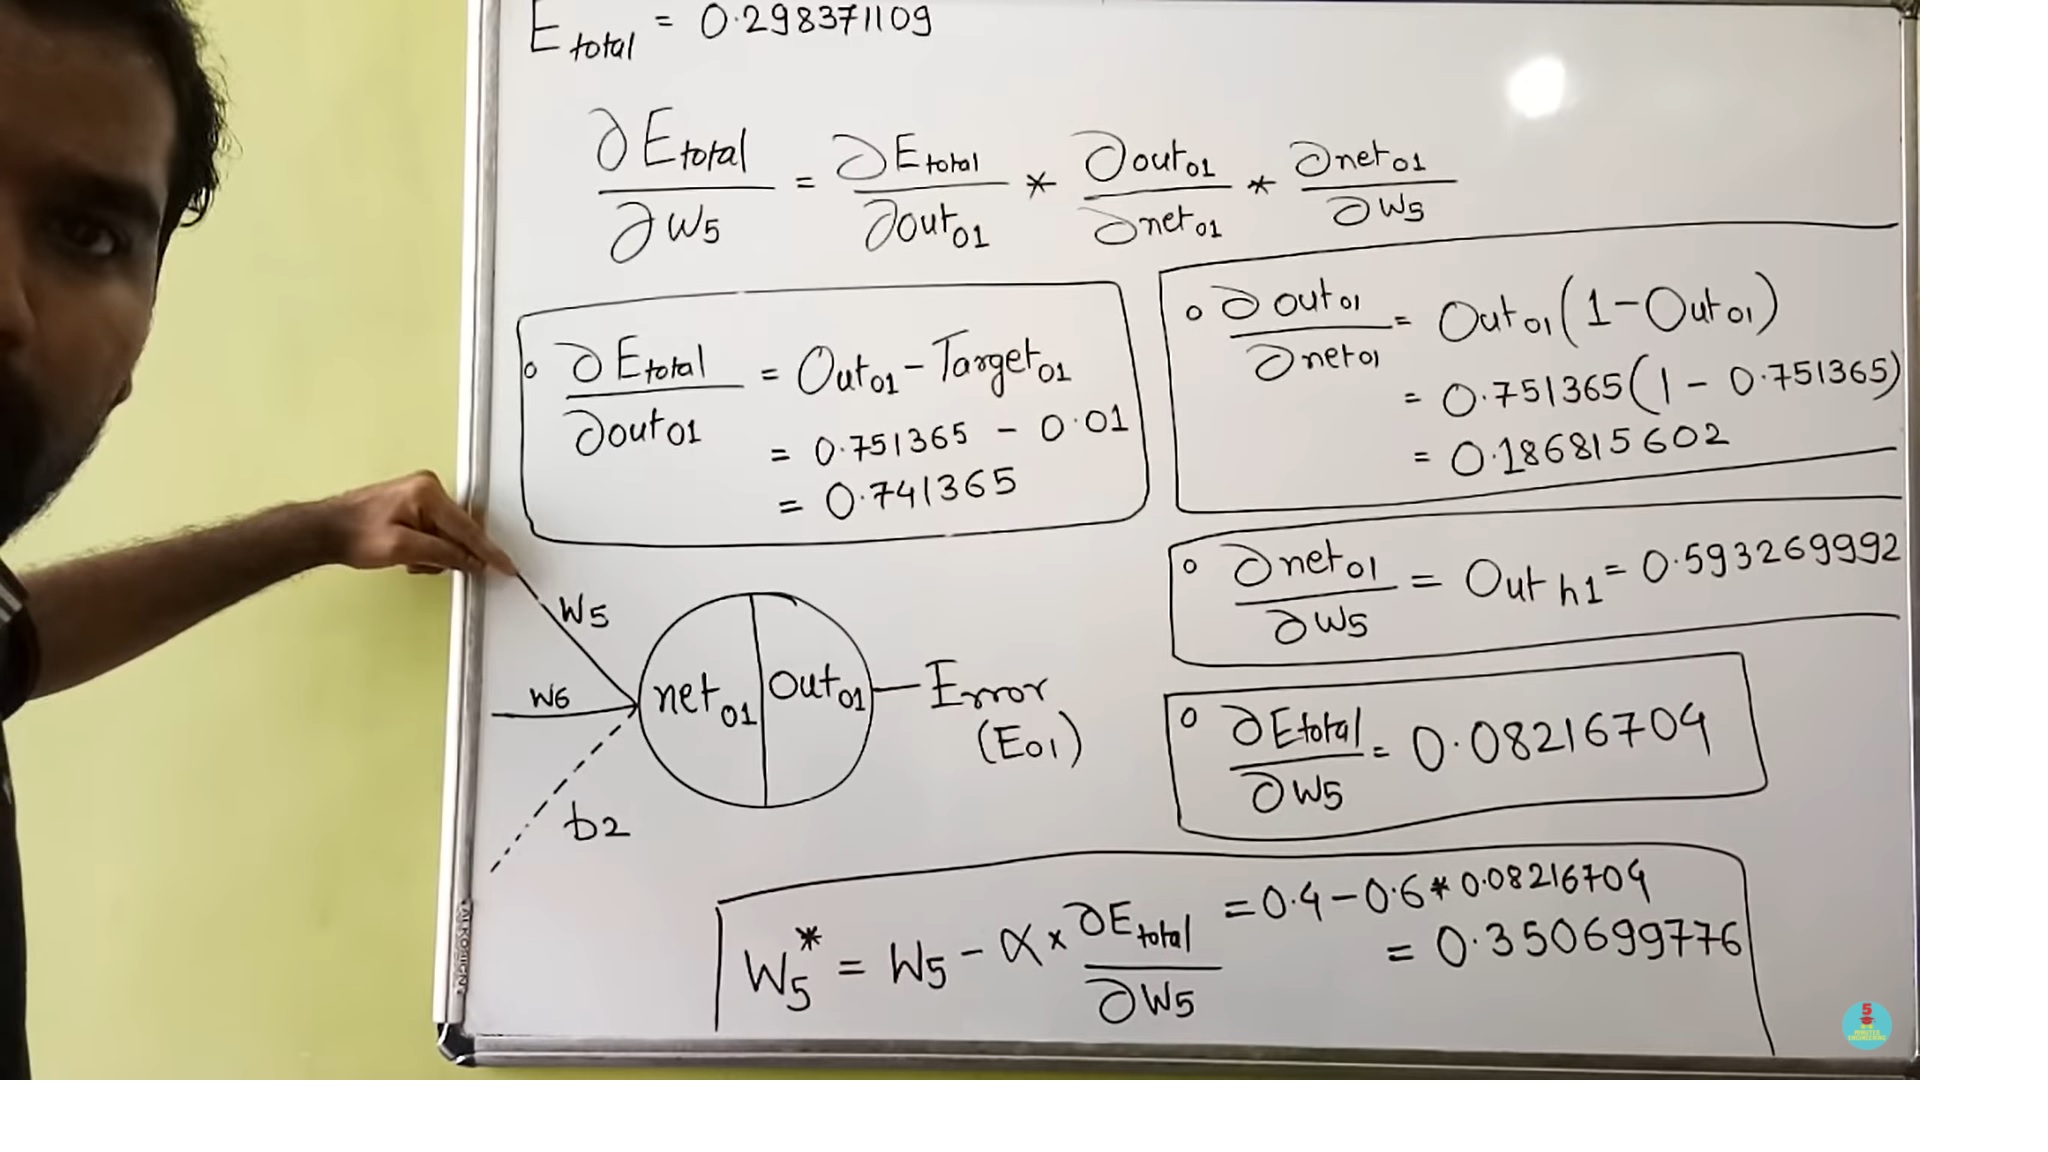 E total = 0.298371109
∂E total / ∂W5 = ∂E total / ∂out 01 * ∂out 01 / ∂net 01 * ∂net 01 / ∂W5
∂E total / ∂out 01 = Out 01 - Target 01
= 0.751365 - 0.01
= 0.741365
∂out 01 / ∂net 01 = Out 01 (1 - Out 01)
= 0.751365 (1 - 0.751365)
= 0.186815602
∂net 01 / ∂W5 = Out h1 = 0.593269992
∂E total / ∂W5 = 0.08216704
W5
W6
b2
net 01
Out 01
Error
(E01)
W5* = W5 - α × ∂E total / ∂W5 = 0.4 - 0.6 * 0.08216704
= 0.350699776
5
MINUTES
ENGINEERING